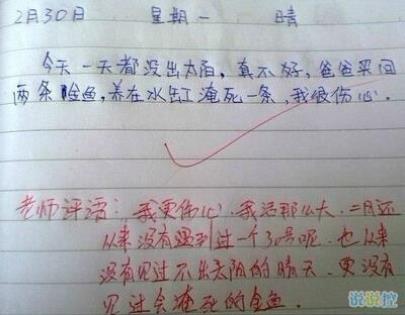 2月30日 星期一 晴
今天一天都没出太阳，真不好，爸爸买回
两条金鱼，养在水缸淹死一条，我很伤心。
老师评语：我更伤心，我活那么大，二月还
从来没有遇到过一个30号呢，也从来
没有见过不出太阳的晴天，更没有
见过会淹死的金鱼．
说说控